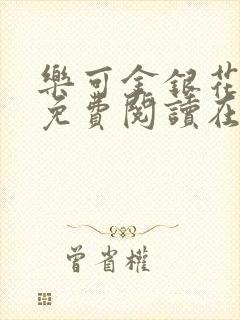 樂可金銀花
免費閱讀在
曾省權